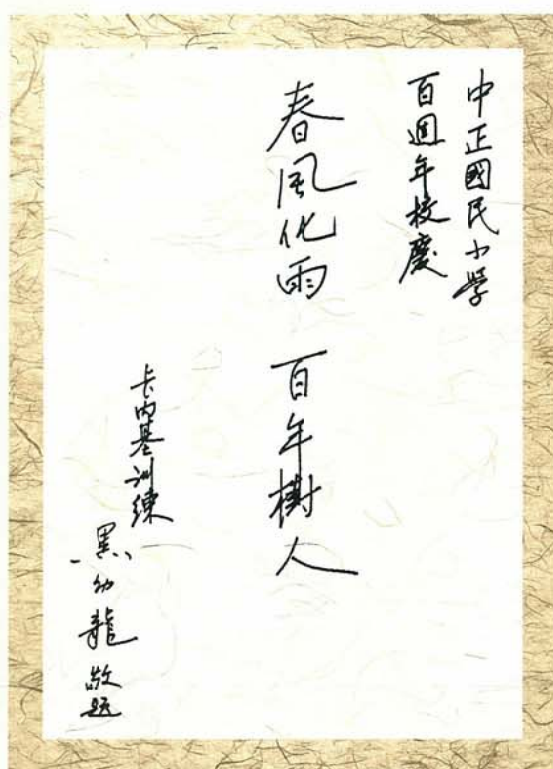 中正國民小學
百週年校慶
春風化雨 百年樹人
卡內基訓練
黑幼龍 敬題